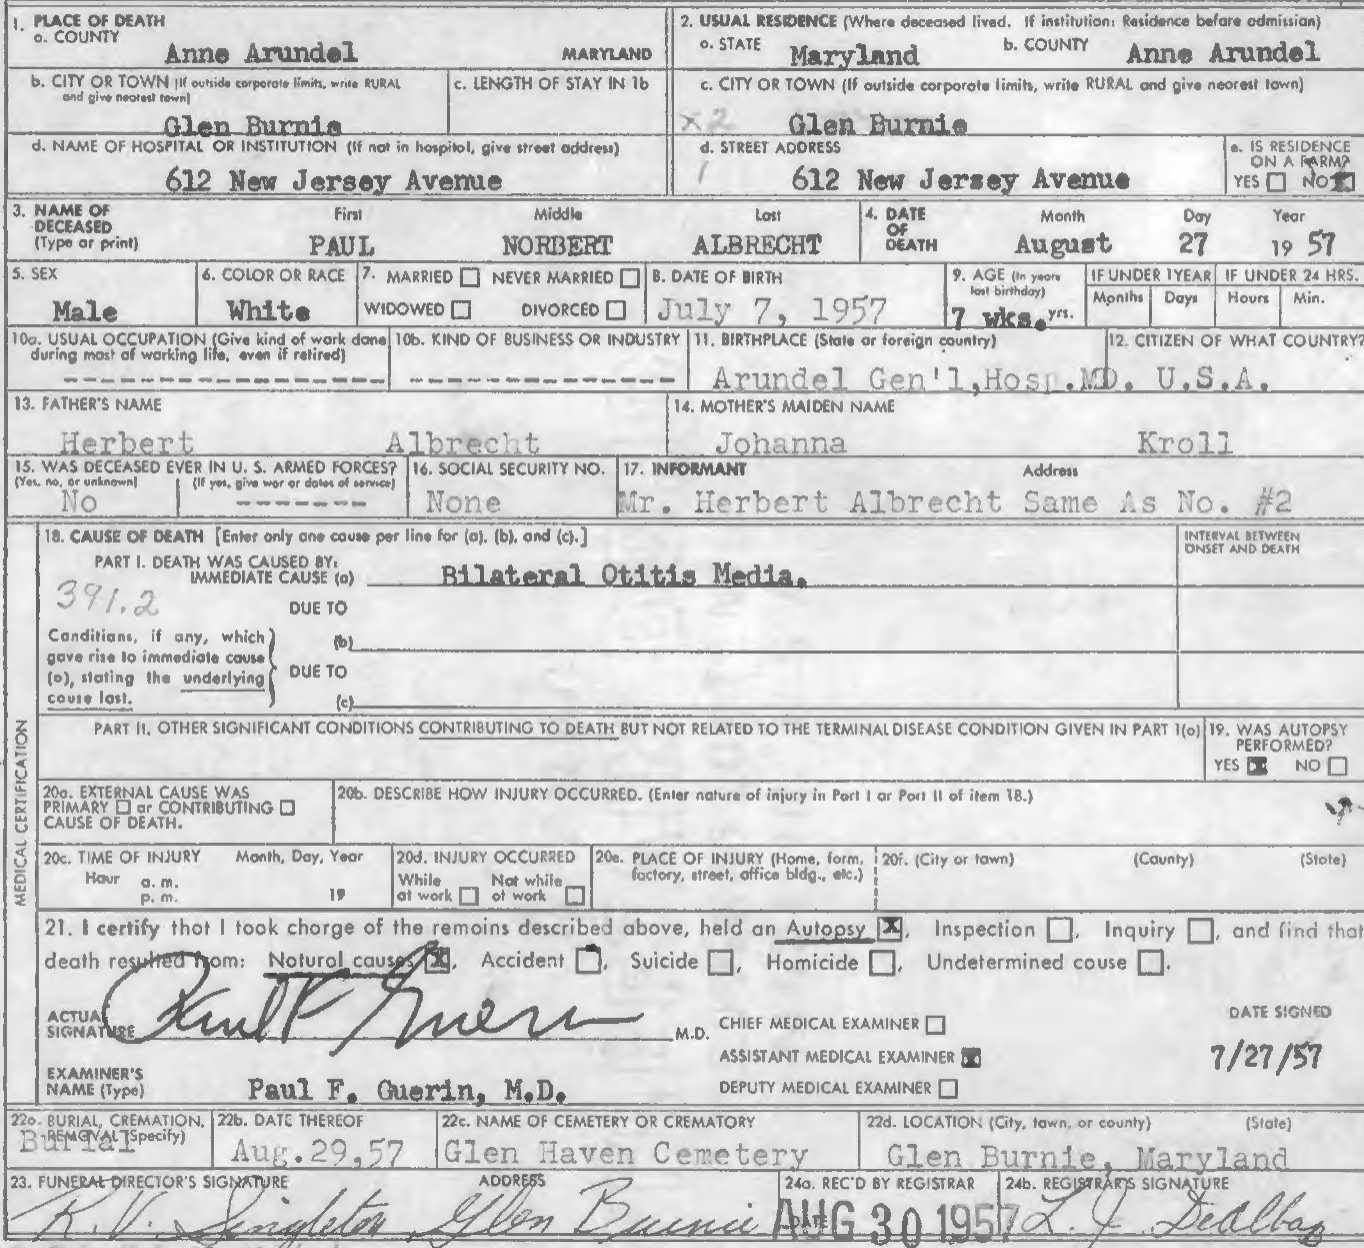 1. PLACE OF DEATH
a. COUNTY
Anne Arundel MARYLAND
2. USUAL RESIDENCE (Where deceased lived. If institution: Residence before admission)
a. STATE Maryland b. COUNTY Anne Arundel
b. CITY OR TOWN (If outside corporate limits, write RURAL
and give nearest town)
Glen Burnie
c. LENGTH OF STAY IN 1b
c. CITY OR TOWN (If outside corporate limits, write RURAL and give nearest town)
x2 Glen Burnie
d. NAME OF HOSPITAL OR INSTITUTION (If not in hospital, give street address)
612 New Jersey Avenue
d. STREET ADDRESS
1 612 New Jersey Avenue
e. IS RESIDENCE
ON A FARM?
YES NO
3. NAME OF
DECEASED
(Type or print)
First Middle Last
PAUL NORBERT ALBRECHT
4. DATE
OF
DEATH
Month Day Year
August 27 19 57
5. SEX
Male
6. COLOR OR RACE
White
7. MARRIED NEVER MARRIED
WIDOWED DIVORCED
8. DATE OF BIRTH
July 7, 1957
9. AGE (In years
last birthday)
7 wks. yrs.
IF UNDER 1 YEAR
Months Days
IF UNDER 24 HRS.
Hours Min.
10a. USUAL OCCUPATION (Give kind of work done
during most of working life, even if retired)
10b. KIND OF BUSINESS OR INDUSTRY
11. BIRTHPLACE (State or foreign country)
Arundel Gen'l,Hosp.MD.
12. CITIZEN OF WHAT COUNTRY?
U.S.A.
13. FATHER'S NAME
Herbert Albrecht
14. MOTHER'S MAIDEN NAME
Johanna Kroll
15. WAS DECEASED EVER IN U. S. ARMED FORCES?
(Yes, no, or unknown) (If yes, give war or dates of service)
No -------
16. SOCIAL SECURITY NO.
None
17. INFORMANT Address
Mr. Herbert Albrecht Same As No. #2
MEDICAL CERTIFICATION
18. CAUSE OF DEATH [Enter only one cause per line for (a), (b), and (c).]
INTERVAL BETWEEN
ONSET AND DEATH
PART I. DEATH WAS CAUSED BY:
IMMEDIATE CAUSE (a) Bilateral Otitis Media.
391.2
DUE TO
Conditions, if any, which
gave rise to immediate cause
(a), stating the underlying
cause last.
(b)
DUE TO
(c)
PART II. OTHER SIGNIFICANT CONDITIONS CONTRIBUTING TO DEATH BUT NOT RELATED TO THE TERMINAL DISEASE CONDITION GIVEN IN PART I(a)
19. WAS AUTOPSY
PERFORMED?
YES NO
20a. EXTERNAL CAUSE WAS
PRIMARY or CONTRIBUTING
CAUSE OF DEATH.
20b. DESCRIBE HOW INJURY OCCURRED. (Enter nature of injury in Part I or Part II of item 18.)
20c. TIME OF INJURY Month, Day, Year
Hour a. m.
p. m. 19
20d. INJURY OCCURRED
While Not while
at work at work
20e. PLACE OF INJURY (Home, farm,
factory, street, office bldg., etc.)
20f. (City or town) (County) (State)
21. I certify that I took charge of the remains described above, held an Autopsy X, Inspection , Inquiry , and find that
death resulted from: Natural causes X, Accident , Suicide , Homicide , Undetermined cause .
ACTUAL
SIGNATURE Paul F Guerin M.D.
CHIEF MEDICAL EXAMINER
ASSISTANT MEDICAL EXAMINER
DEPUTY MEDICAL EXAMINER
DATE SIGNED
7/27/57
EXAMINER'S
NAME (Type) Paul F. Guerin, M.D.
22a. BURIAL, CREMATION,
REMOVAL (Specify)
Burial
22b. DATE THEREOF
Aug.29,57
22c. NAME OF CEMETERY OR CREMATORY
Glen Haven Cemetery
22d. LOCATION (City, town, or county) (State)
Glen Burnie, Maryland
23. FUNERAL DIRECTOR'S SIGNATURE ADDRESS
R. V. Singleton Glen Burnie
24a. REC'D BY REGISTRAR
DATE AUG 30 1957
24b. REGISTRAR'S SIGNATURE
L. J. DeAlba